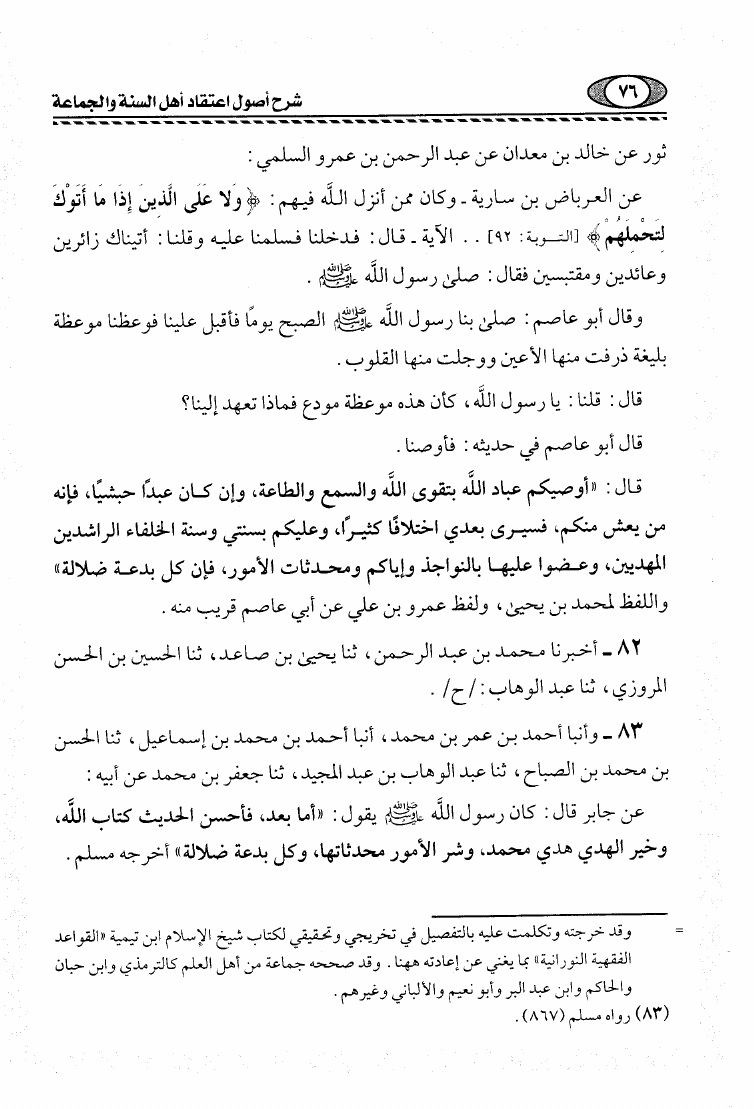 ٧٦
شرح أصول اعتقاد أهل السنة والجماعة
ثور عن خالد بن معدان عن عبد الرحمن بن عمرو السلمي:
عن العرباض بن سارية ـ وكان ممن أنزل اللَّه فيهم: ﴿وَلا عَلَى الَّذِينَ إِذَا مَا أَتَوْكَ
لِتَحْمِلَهُمْ﴾ [التـوبة: ٩٢] . . الآية ـ قـال: فـدخلنا فسلمنا عليه وقلنا: أتيناك زائرين
وعائدين ومقتبسين فقال: صلى رسول اللَّه ﷺ .
وقال أبو عاصم: صلى بنا رسول اللَّه ﷺ الصبح يومًا فأقبل علينا فوعظنا موعظة
بليغة ذرفت منها الأعين ووجلت منها القلوب.
قال: قلنا: يا رسول اللَّه، كأن هذه موعظة مودع فماذا تعهد إلينا؟
قال أبو عاصم في حديثه: فأوصنا.
قـال: «أوصيكم عباد اللَّه بتقوى اللَّه والسمع والطاعة، وإن كـان عبدًا حبشيًا، فإنه
من يعش منكم، فسيـرى بعدي اختلافًا كثيـرًا، وعليكم بسنتي وسنة الخلفاء الراشدين
المهديين، وعـضوا عليهـا بالنواجذ وإياكم ومحـدثات الأمور، فإن كل بدعـة ضلالة»
واللفظ لمحمد بن يحيى، ولفظ عمرو بن علي عن أبي عاصم قريب منه.
٨٢ ـ أخبرنا محـمد بن عبد الرحمن، ثنا يحيى بن صـاعد، ثنا الحسين بن الحسن
المروزي، ثنا عبد الوهاب: /ح/ .
٨٣ ـ وأنبا أحمد بن عمر بن محمد، أنبا أحمد بن محمد بن إسماعيل، ثنا الحسن
بن محمد بن الصباح، ثنا عبد الوهاب بن عبد المجيد، ثنا جعفر بن محمد عن أبيه:
عن جابر قال: كان رسول اللَّه ﷺ يقول: «أما بعد، فأحسن الحديث كتاب اللَّه،
وخير الهدي هدي محمد، وشر الأمور محدثاتها، وكل بدعة ضلالة» أخرجه مسلم.
= وقد خرجته وتكلمت عليه بالتفصيل في تخريجي وتحقيقي لكتاب شيخ الإسلام ابن تيمية «القواعد
الفقهية النورانية» بما يغني عن إعادته ههنا. وقد صححه جماعة من أهل العلم كالترمذي وابن حبان
والحاكم وابن عبد البر وأبو نعيم والألباني وغيرهم.
(٨٣) رواه مسلم (٨٦٧).